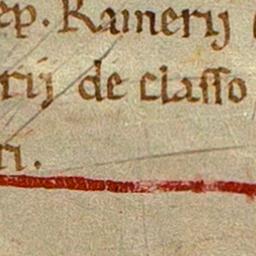 ep. Rainerij
rij de classo
ri.